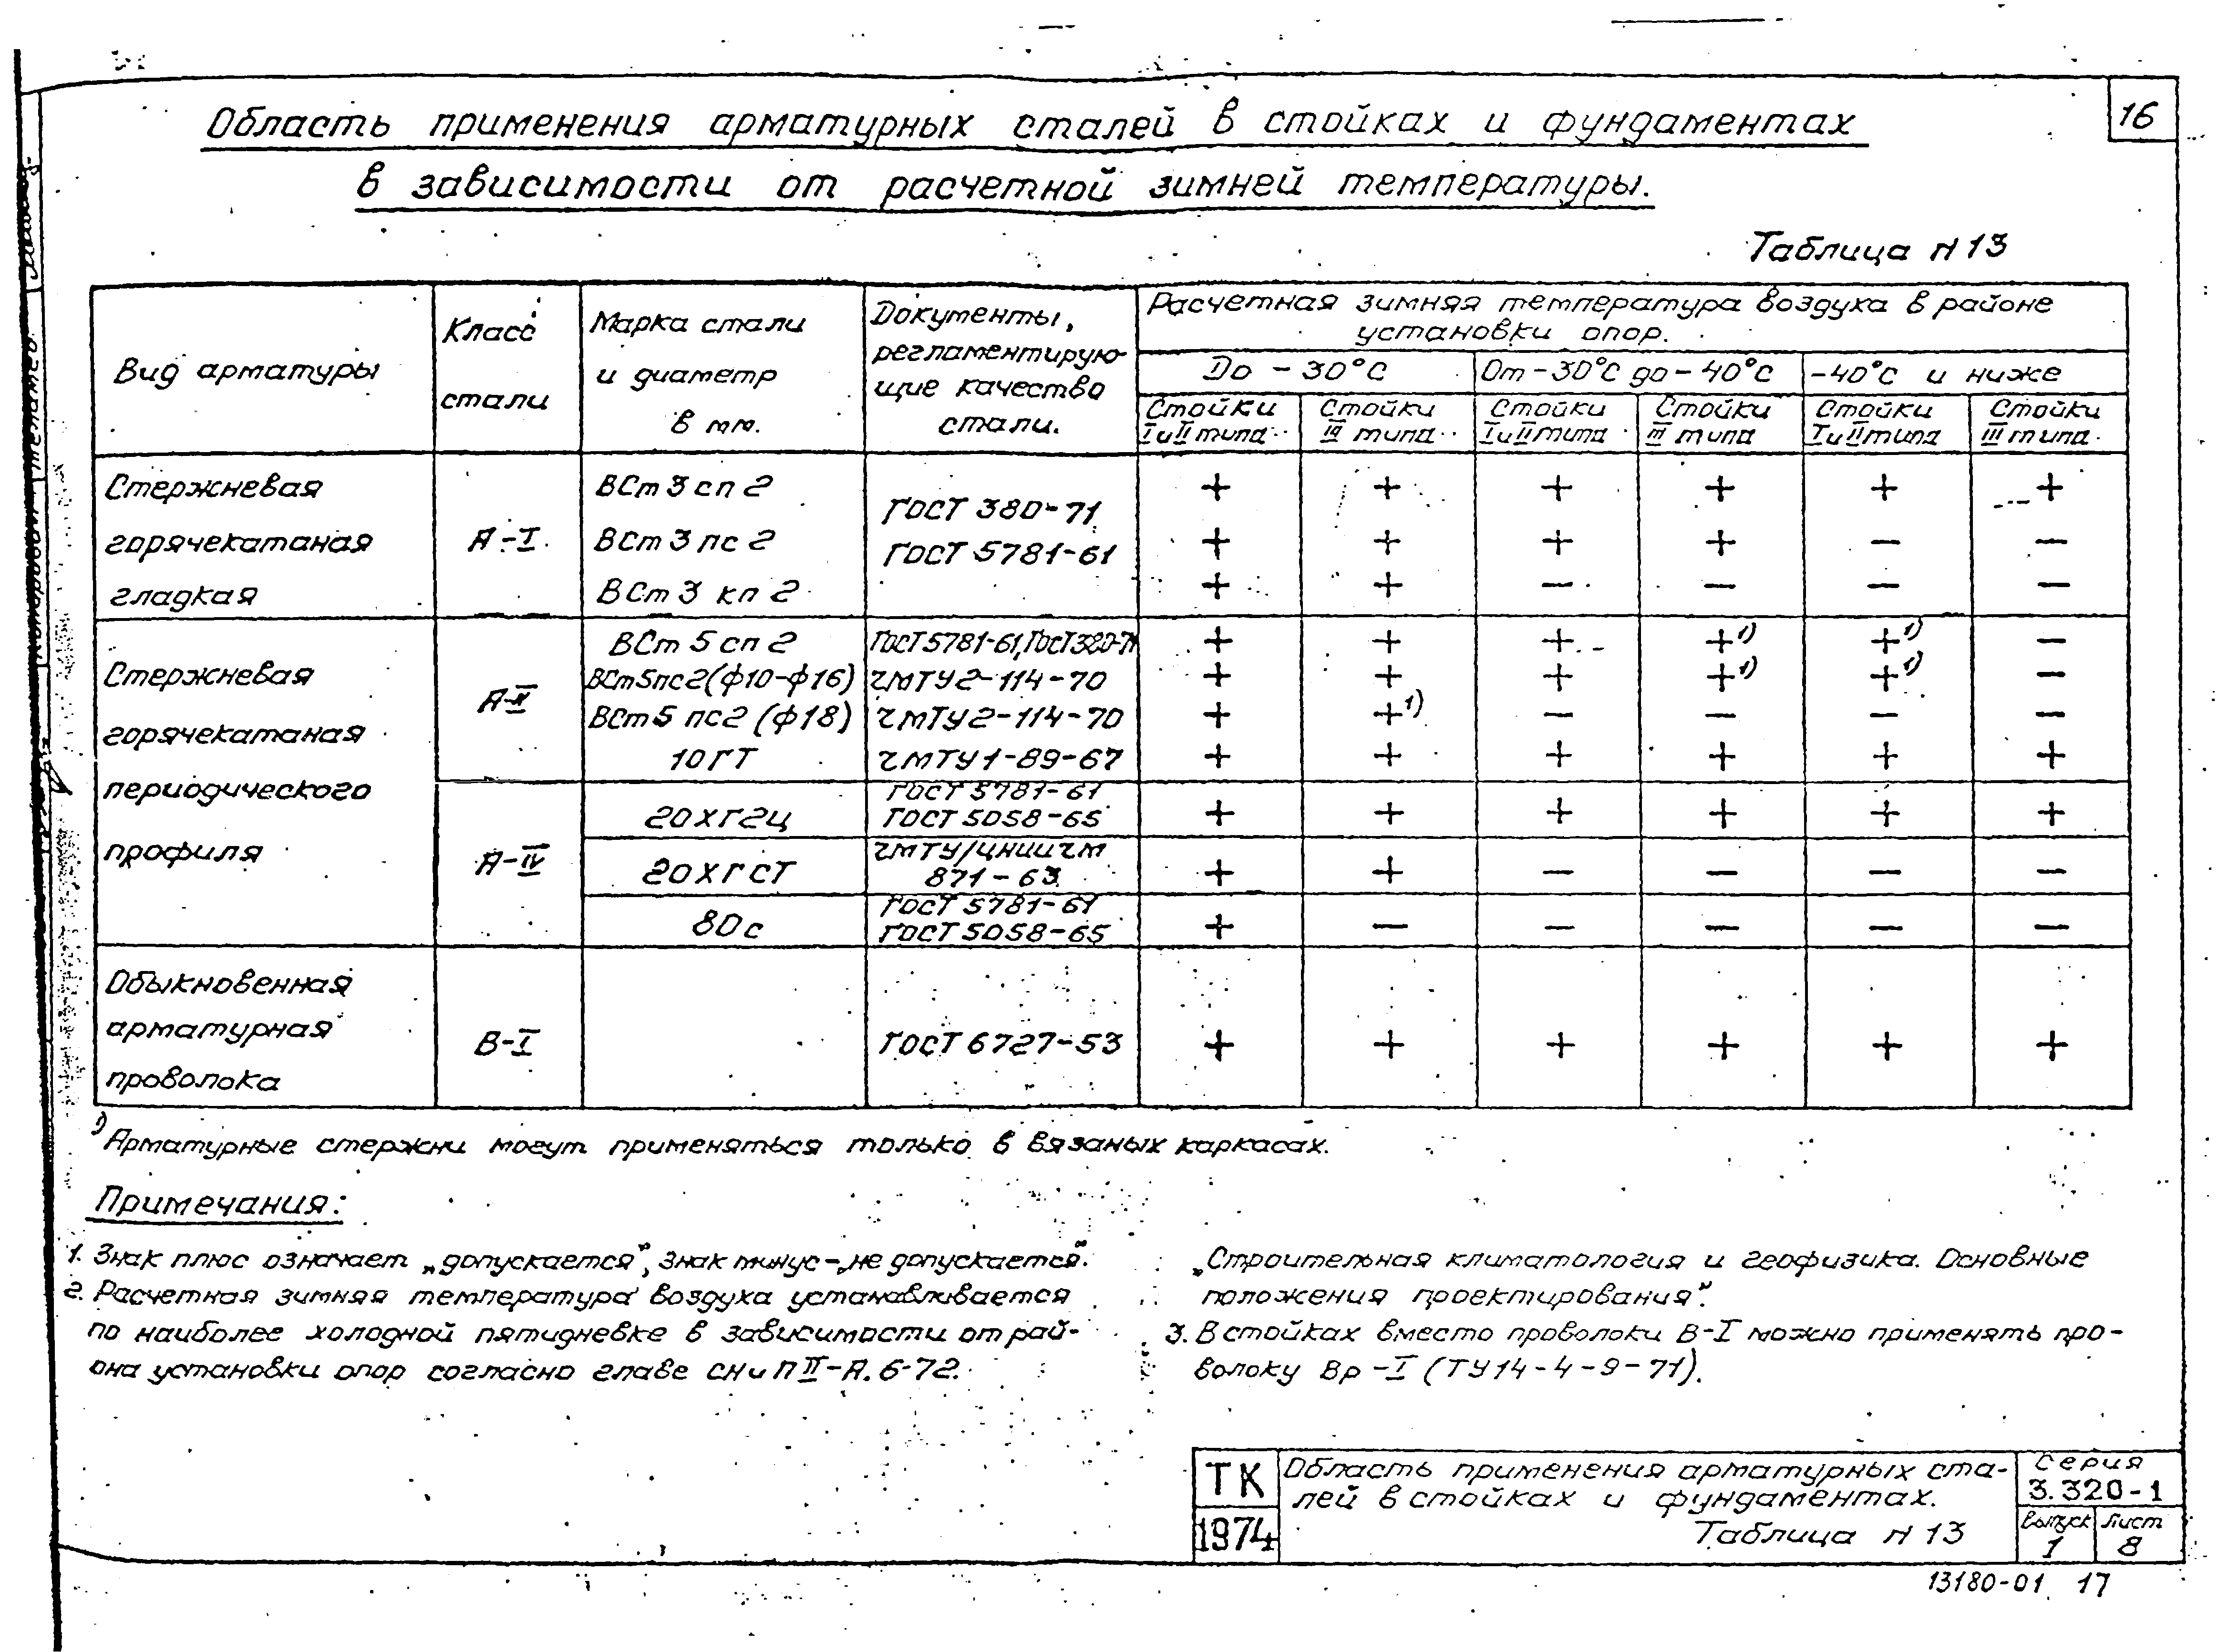 16
Область применения арматурных сталей в стойках и фундаментах
в зависимости от расчетной зимней температуры.
Таблица N 13
Вид арматуры
Класс
стали
Марка стали
и диаметр
в мм.
Документы,
регламентирую-
щие качество
стали.
Расчетная зимняя температура воздуха в районе
установки опор.
До -30°С
От -30°С до -40°С
-40°С и ниже
Стойки I и II типа
Стойки III типа
Стойки I и II типа
Стойки III типа
Стойки I и II типа
Стойки III типа
Стержневая
горячекатаная
гладкая
А-I
ВСт 3 сп 2
ВСт 3 пс 2
ВСт 3 кп 2
ГОСТ 380-71
ГОСТ 5781-61
+ + + + + +
+ + + + — —
+ + — — — —
Стержневая
горячекатаная
периодического
профиля
А-II
ВСт 5 сп 2 ГОСТ 5781-61, ГОСТ 380-71 + + + +¹⁾ +¹⁾ —
ВСт5пс2(ф10-ф16) ЧМТУ2-114-70 + + + +¹⁾ +¹⁾ —
ВСт5 пс2 (ф18) ЧМТУ2-114-70 + +¹⁾ — — — —
10ГТ ЧМТУ1-89-67 + + + + + +
А-IV
20ХГ2Ц ГОСТ 5781-61
ГОСТ 5058-65 + + + + + +
20ХГСТ ЧМТУ/ЦНИИЧМ
871-63 + + — — — —
80с ГОСТ 5781-61
ГОСТ 5058-65 + — — — — —
Обыкновенная
арматурная
проволока
В-I ГОСТ 6727-53 + + + + + +
¹⁾ Арматурные стержни могут применяться только в вязаных каркасах.
Примечания:
1. Знак плюс означает „допускается“, знак минус-„не допускается“.
2. Расчетная зимняя температура воздуха устанавливается
по наиболее холодной пятидневке в зависимости от рай-
она установки опор согласно главе СНиП II-А.6-72.
„Строительная климатология и геофизика. Основные
положения проектирования“.
3. В стойках вместо проволоки В-I можно применять про-
волоку Вр-I (ТУ14-4-9-71).
ТК
1974
Область применения арматурных ста-
лей в стойках и фундаментах.
Таблица N 13
Серия
3.320-1
Выпуск
1
Лист
8
13180-01 17